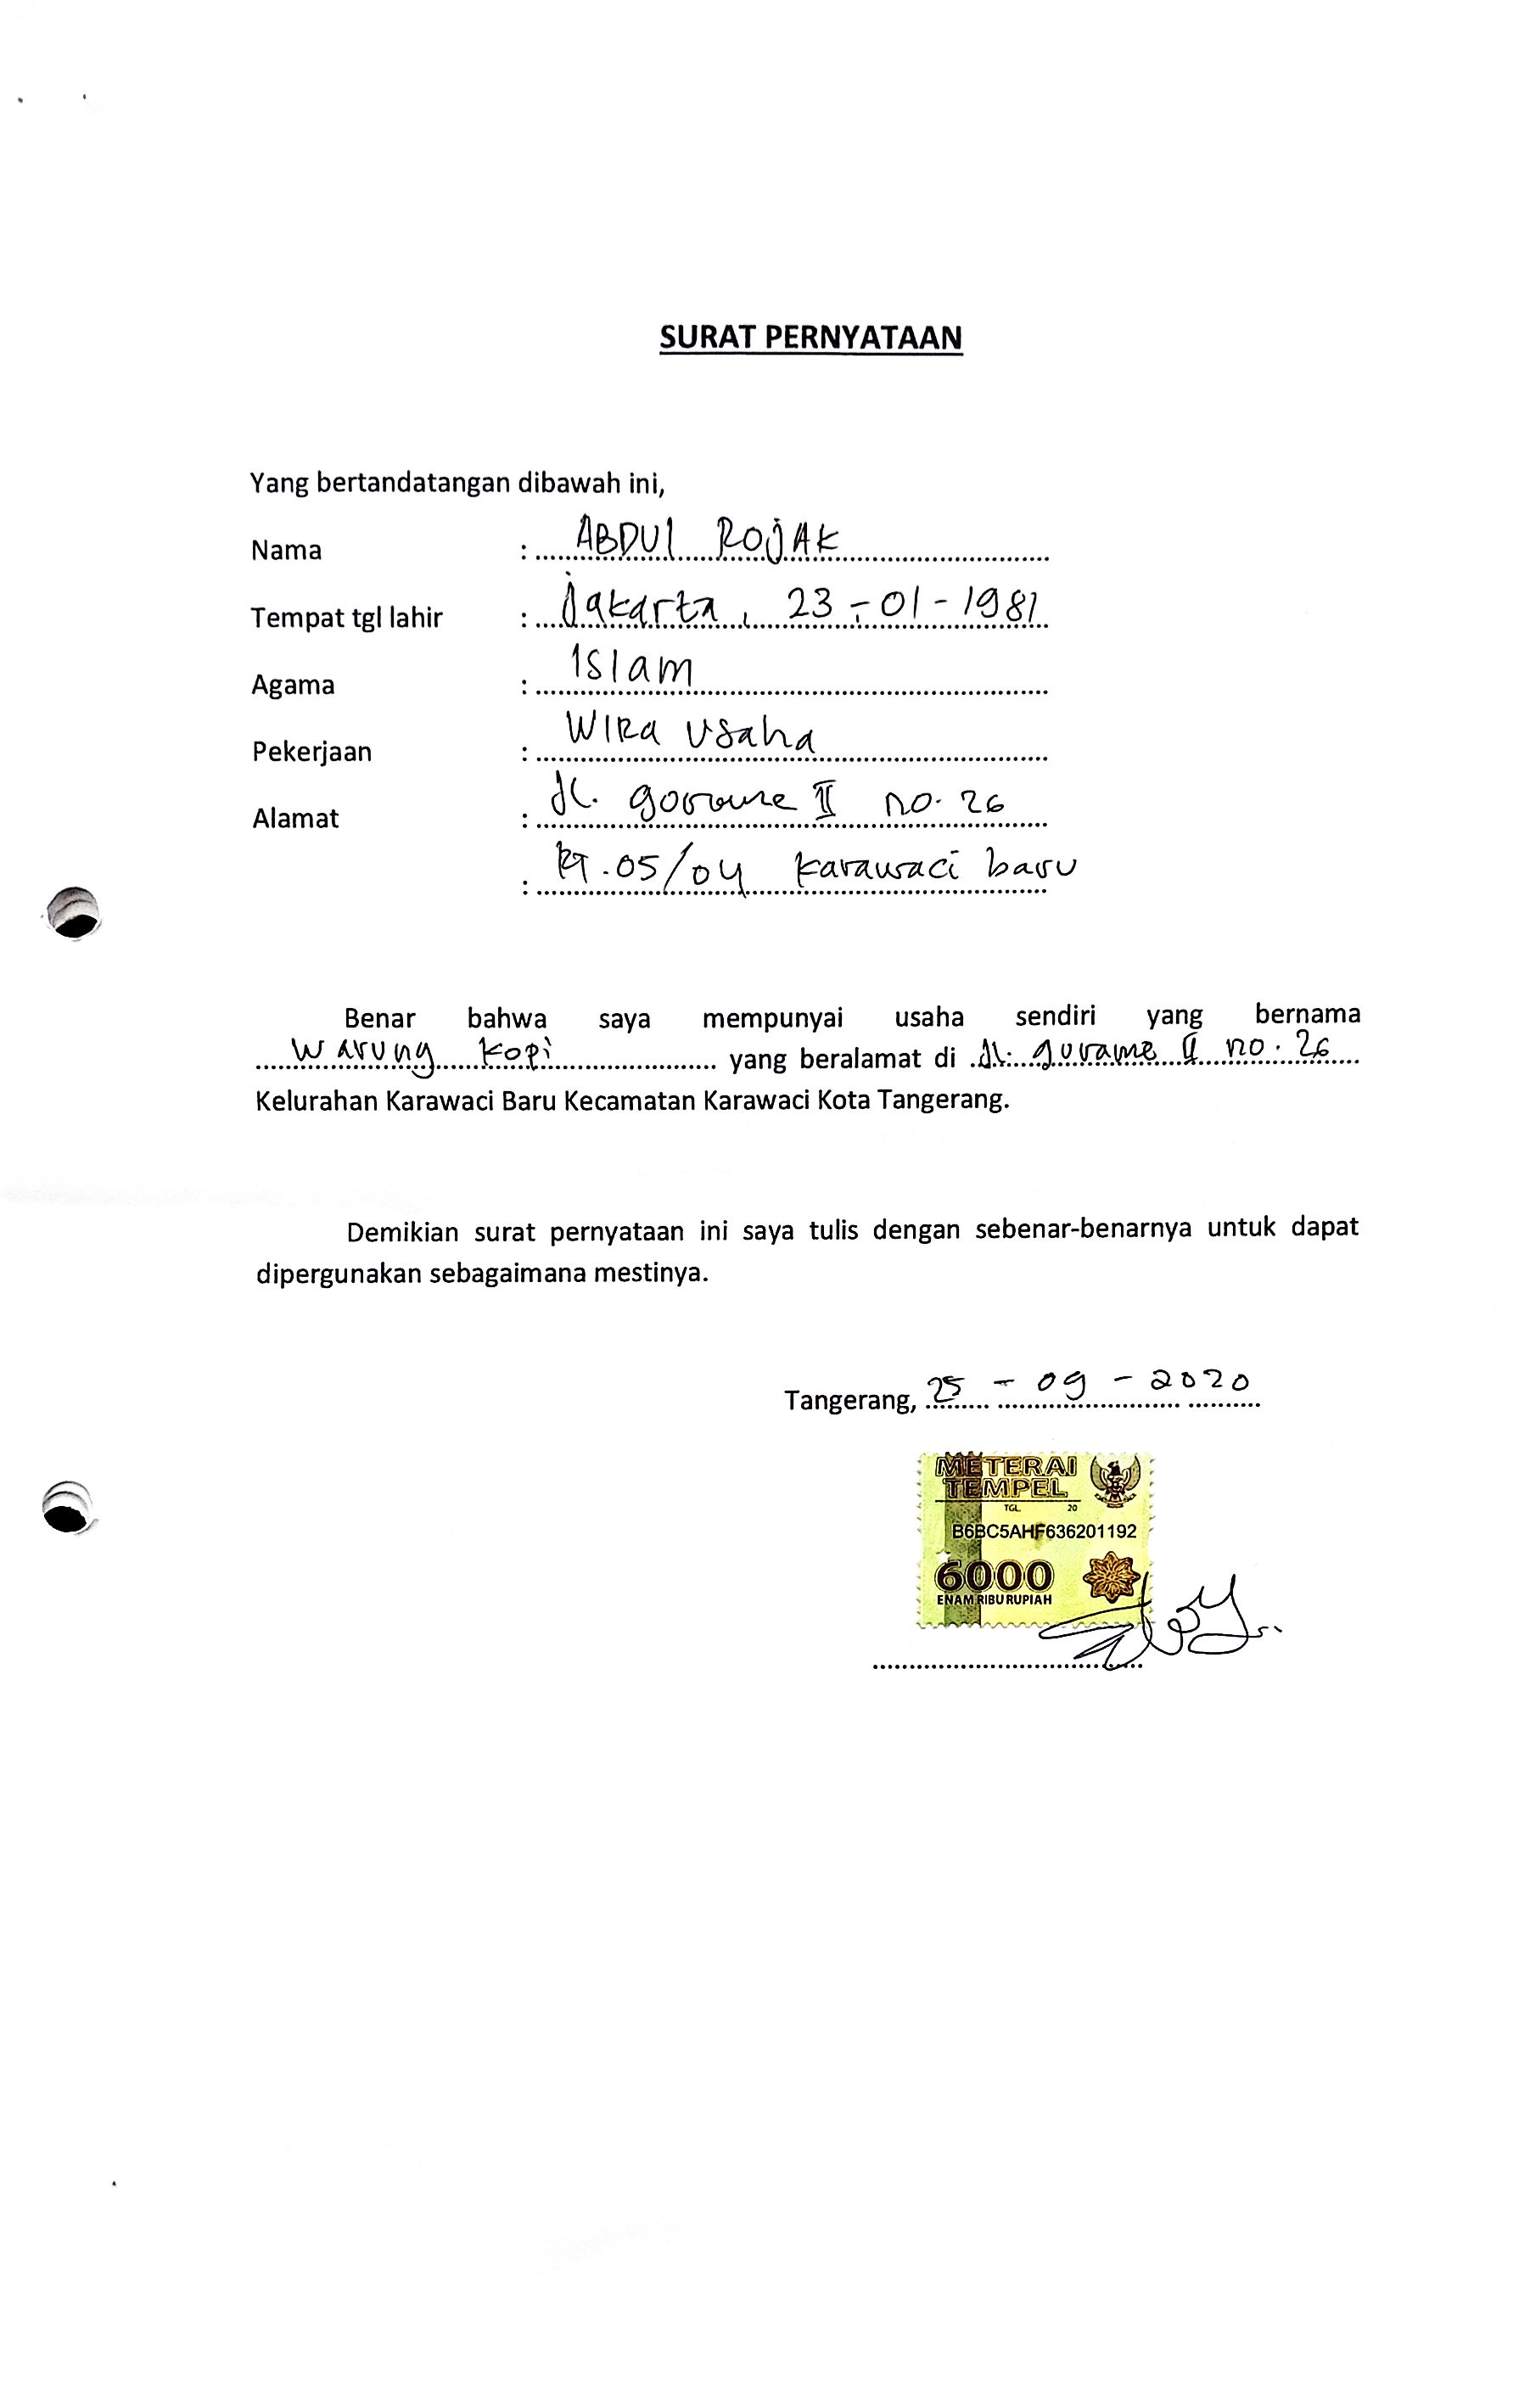 SURAT PERNYATAAN
Yang bertandatangan dibawah ini,
Nama : ABDUl ROjAK
Tempat tgl lahir : Jakarta, 23-01-1981
Agama : Islam
Pekerjaan : WIRa Usaha
Alamat : Jl. gorame II no. 26
: RT.05/04 karawaci baru
Benar bahwa saya mempunyai usaha sendiri yang bernama
Warung kopi yang beralamat di Jl. gurame II no. 26
Kelurahan Karawaci Baru Kecamatan Karawaci Kota Tangerang.
Demikian surat pernyataan ini saya tulis dengan sebenar-benarnya untuk dapat
dipergunakan sebagaimana mestinya.
Tangerang, 25 - 09 - 2020
METERAI
TEMPEL
TGL. 20
B6BC5AHF636201192
6000
ENAM RIBU RUPIAH